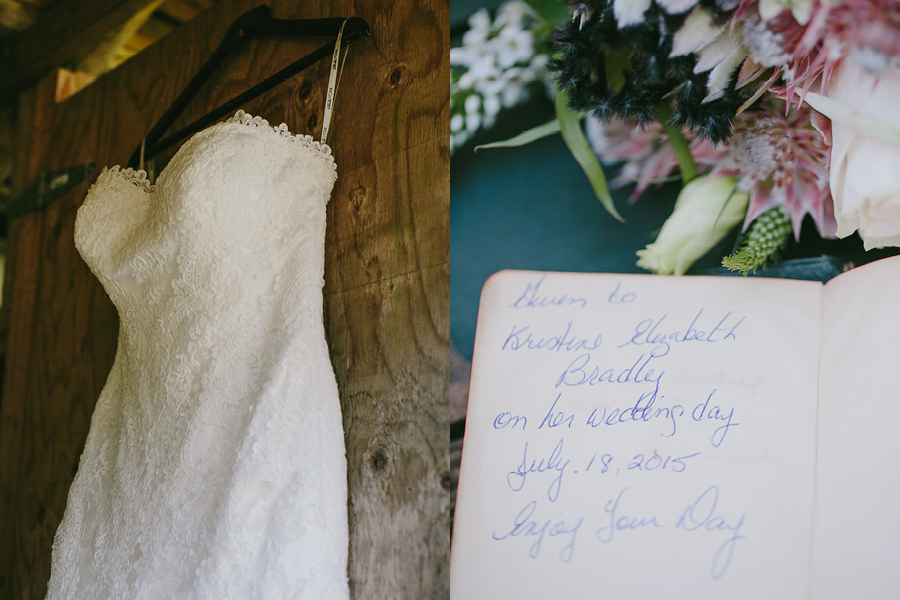 Given to
Kristine Elizabeth
Bradley
on her wedding day
July. 18, 2015
Enjoy Your Day